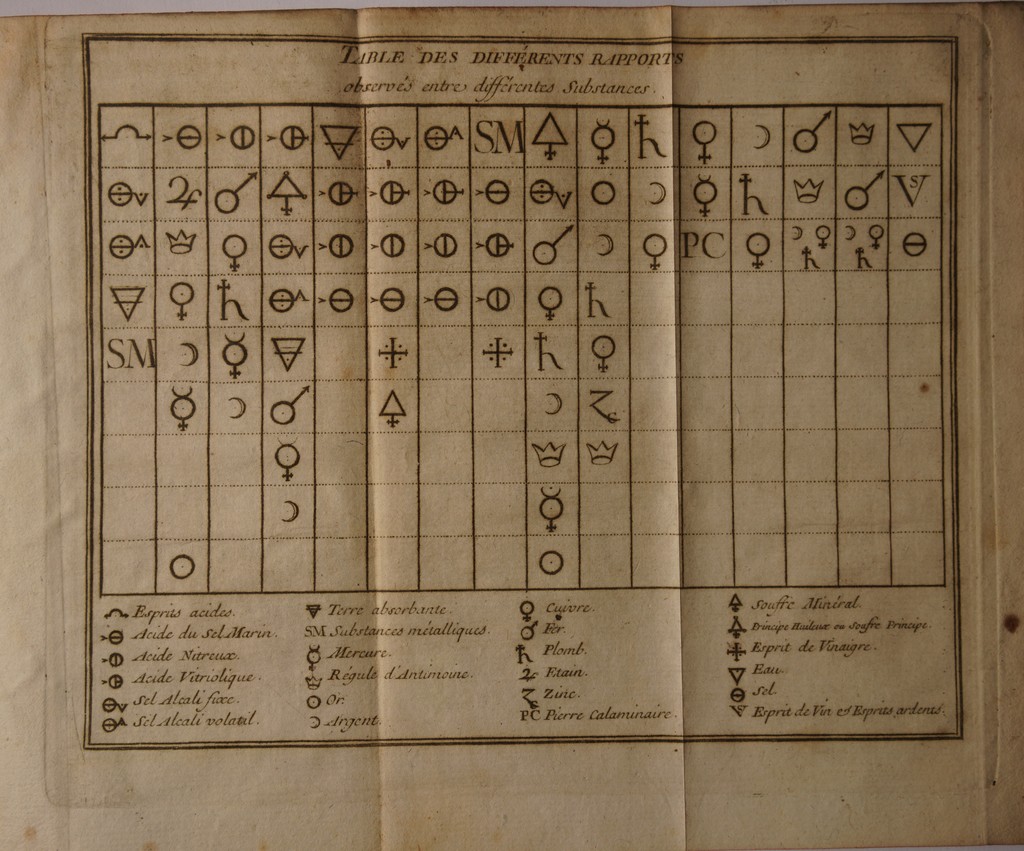 TABLE DES DIFFÉRENTS RAPPORTS
observés entre différentes Substances.
SM
SM
PC
SM
Esprits acides.
Acide du Sel Marin.
Acide Nitreux.
Acide Vitriolique.
Sel Alcali fixe.
Sel Alcali volatil.
Terre absorbante.
SM Substances métalliques.
Mercure.
Régule d'Antimoine.
Or.
Argent.
Cuivre.
Fer.
Plomb.
Etain.
Zinc.
PC Pierre Calaminaire.
Souffre Minéral.
Principe Huileux ou Souffre Principe.
Esprit de Vinaigre.
Eau.
Sel.
Esprit de Vin et Esprits ardents.